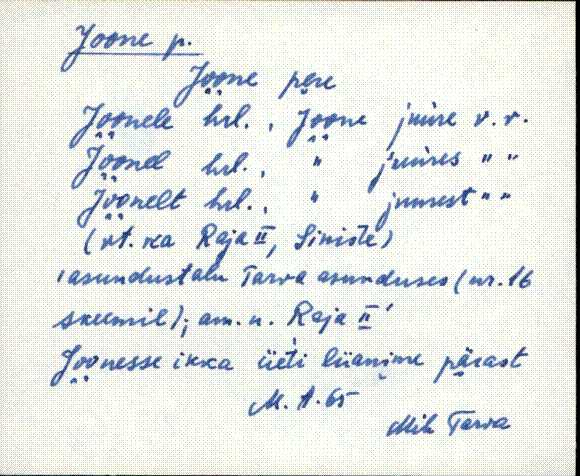 Joone p.
Joone pere
Joonele hrl., Joone juure v.v.
Joonel hrl., " juures " "
Joonelt hrl., " juurest " "
(vt. ka Raja II, Siniste)
'asundustalu Tarva asunduses (nr. 16
skeemil); am. n. Raja II'
Joonesse ikka üeti liianime pärast
M. A. 65
Mih Tarva